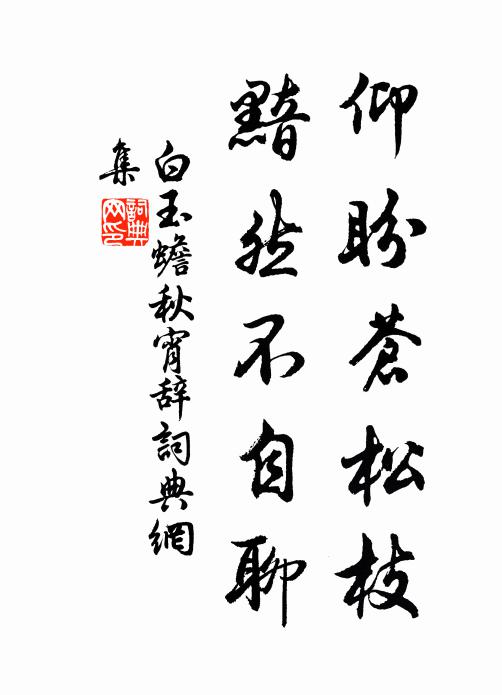 仰盼蒼松枝
黯然不自聊
白玉蟾秋宵辞詞典網
集
詞典网印